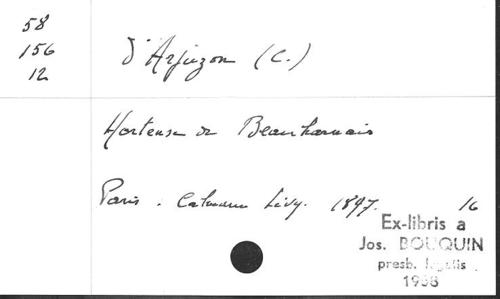 58
156
12
d'Arjuzon (C.)
Hortense de Beauharnais
Paris. Calmann Lévy. 1897. 16
Ex-libris a
Jos. BOUQUIN
presb.
1938